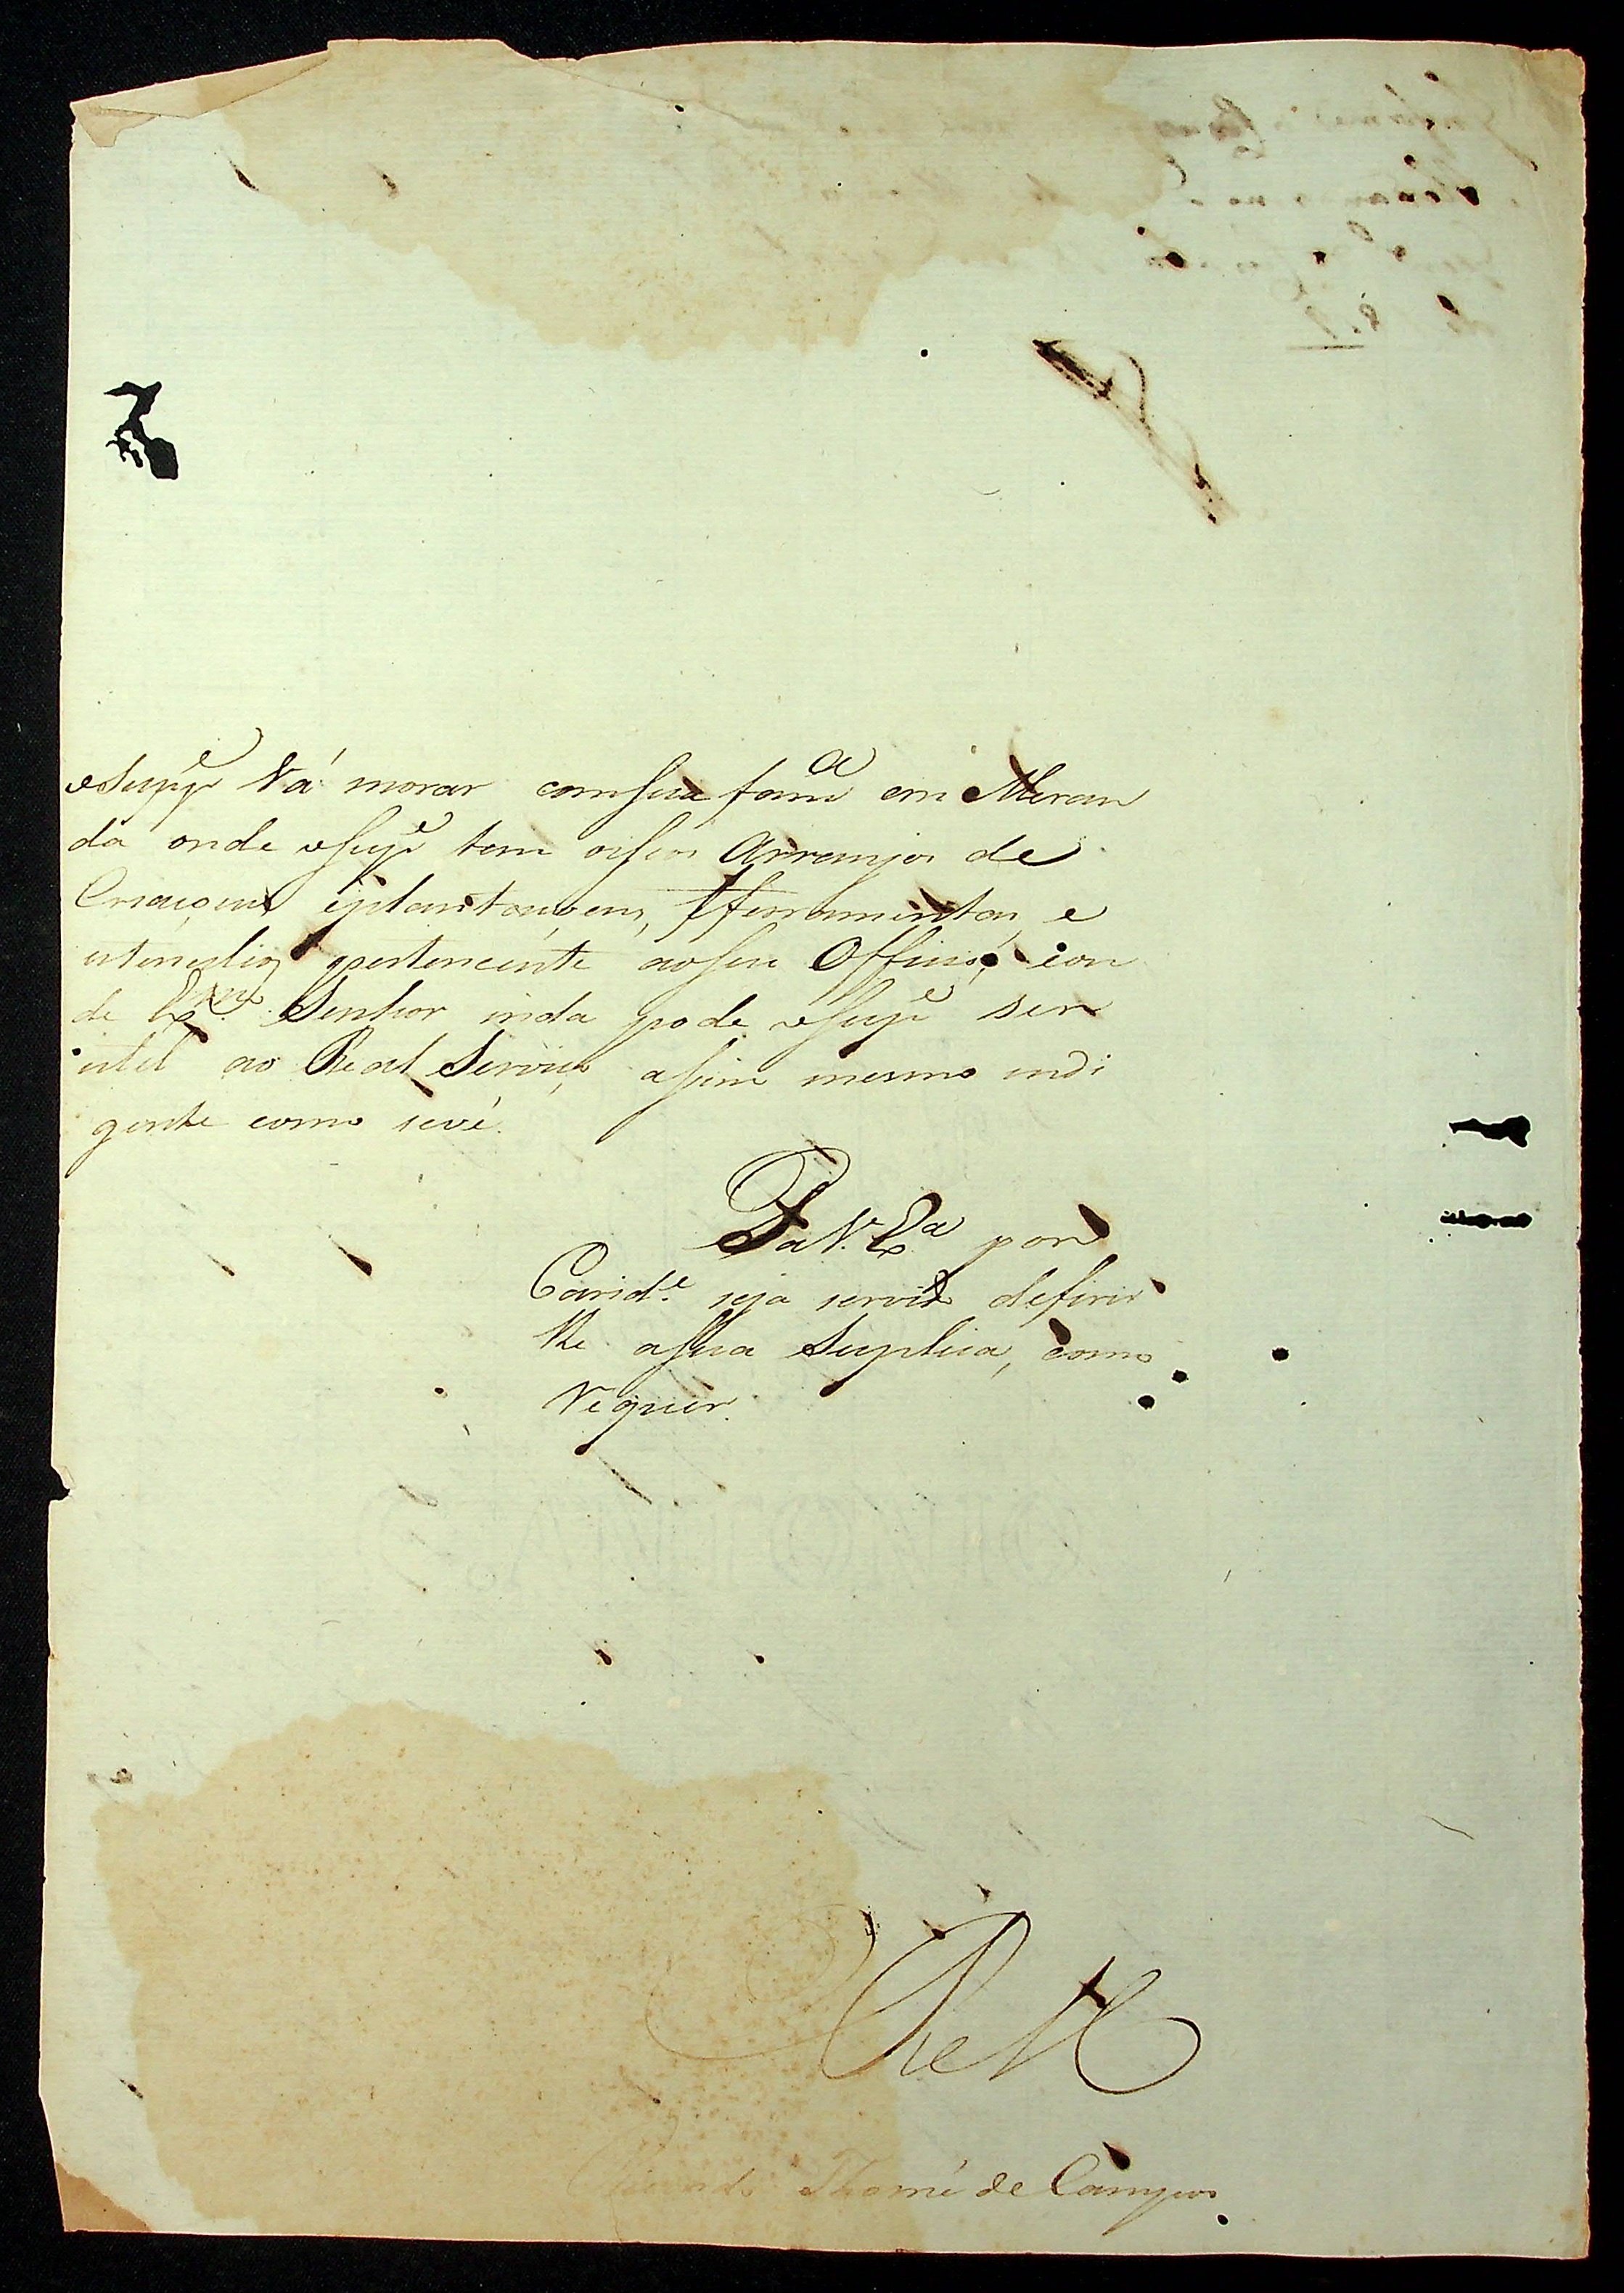 oSupp.e Vá morar comsua fam.a em Miran
da onde osup.e tem osseos Arranjos de
Criaçoens eplantaçoens, Fferramentas, e
utencilios pertencente aoseu Officio, eon
de Ex.mo Senhor inda pode osup.e ser
util ao Real Serviço, assim mesmo indi
gente como sevé.
P. a V. Ex.a por
Carid.e seja servido defirir
lhe assua Suplica, como
Requer.
E R M
Thomé de Campos